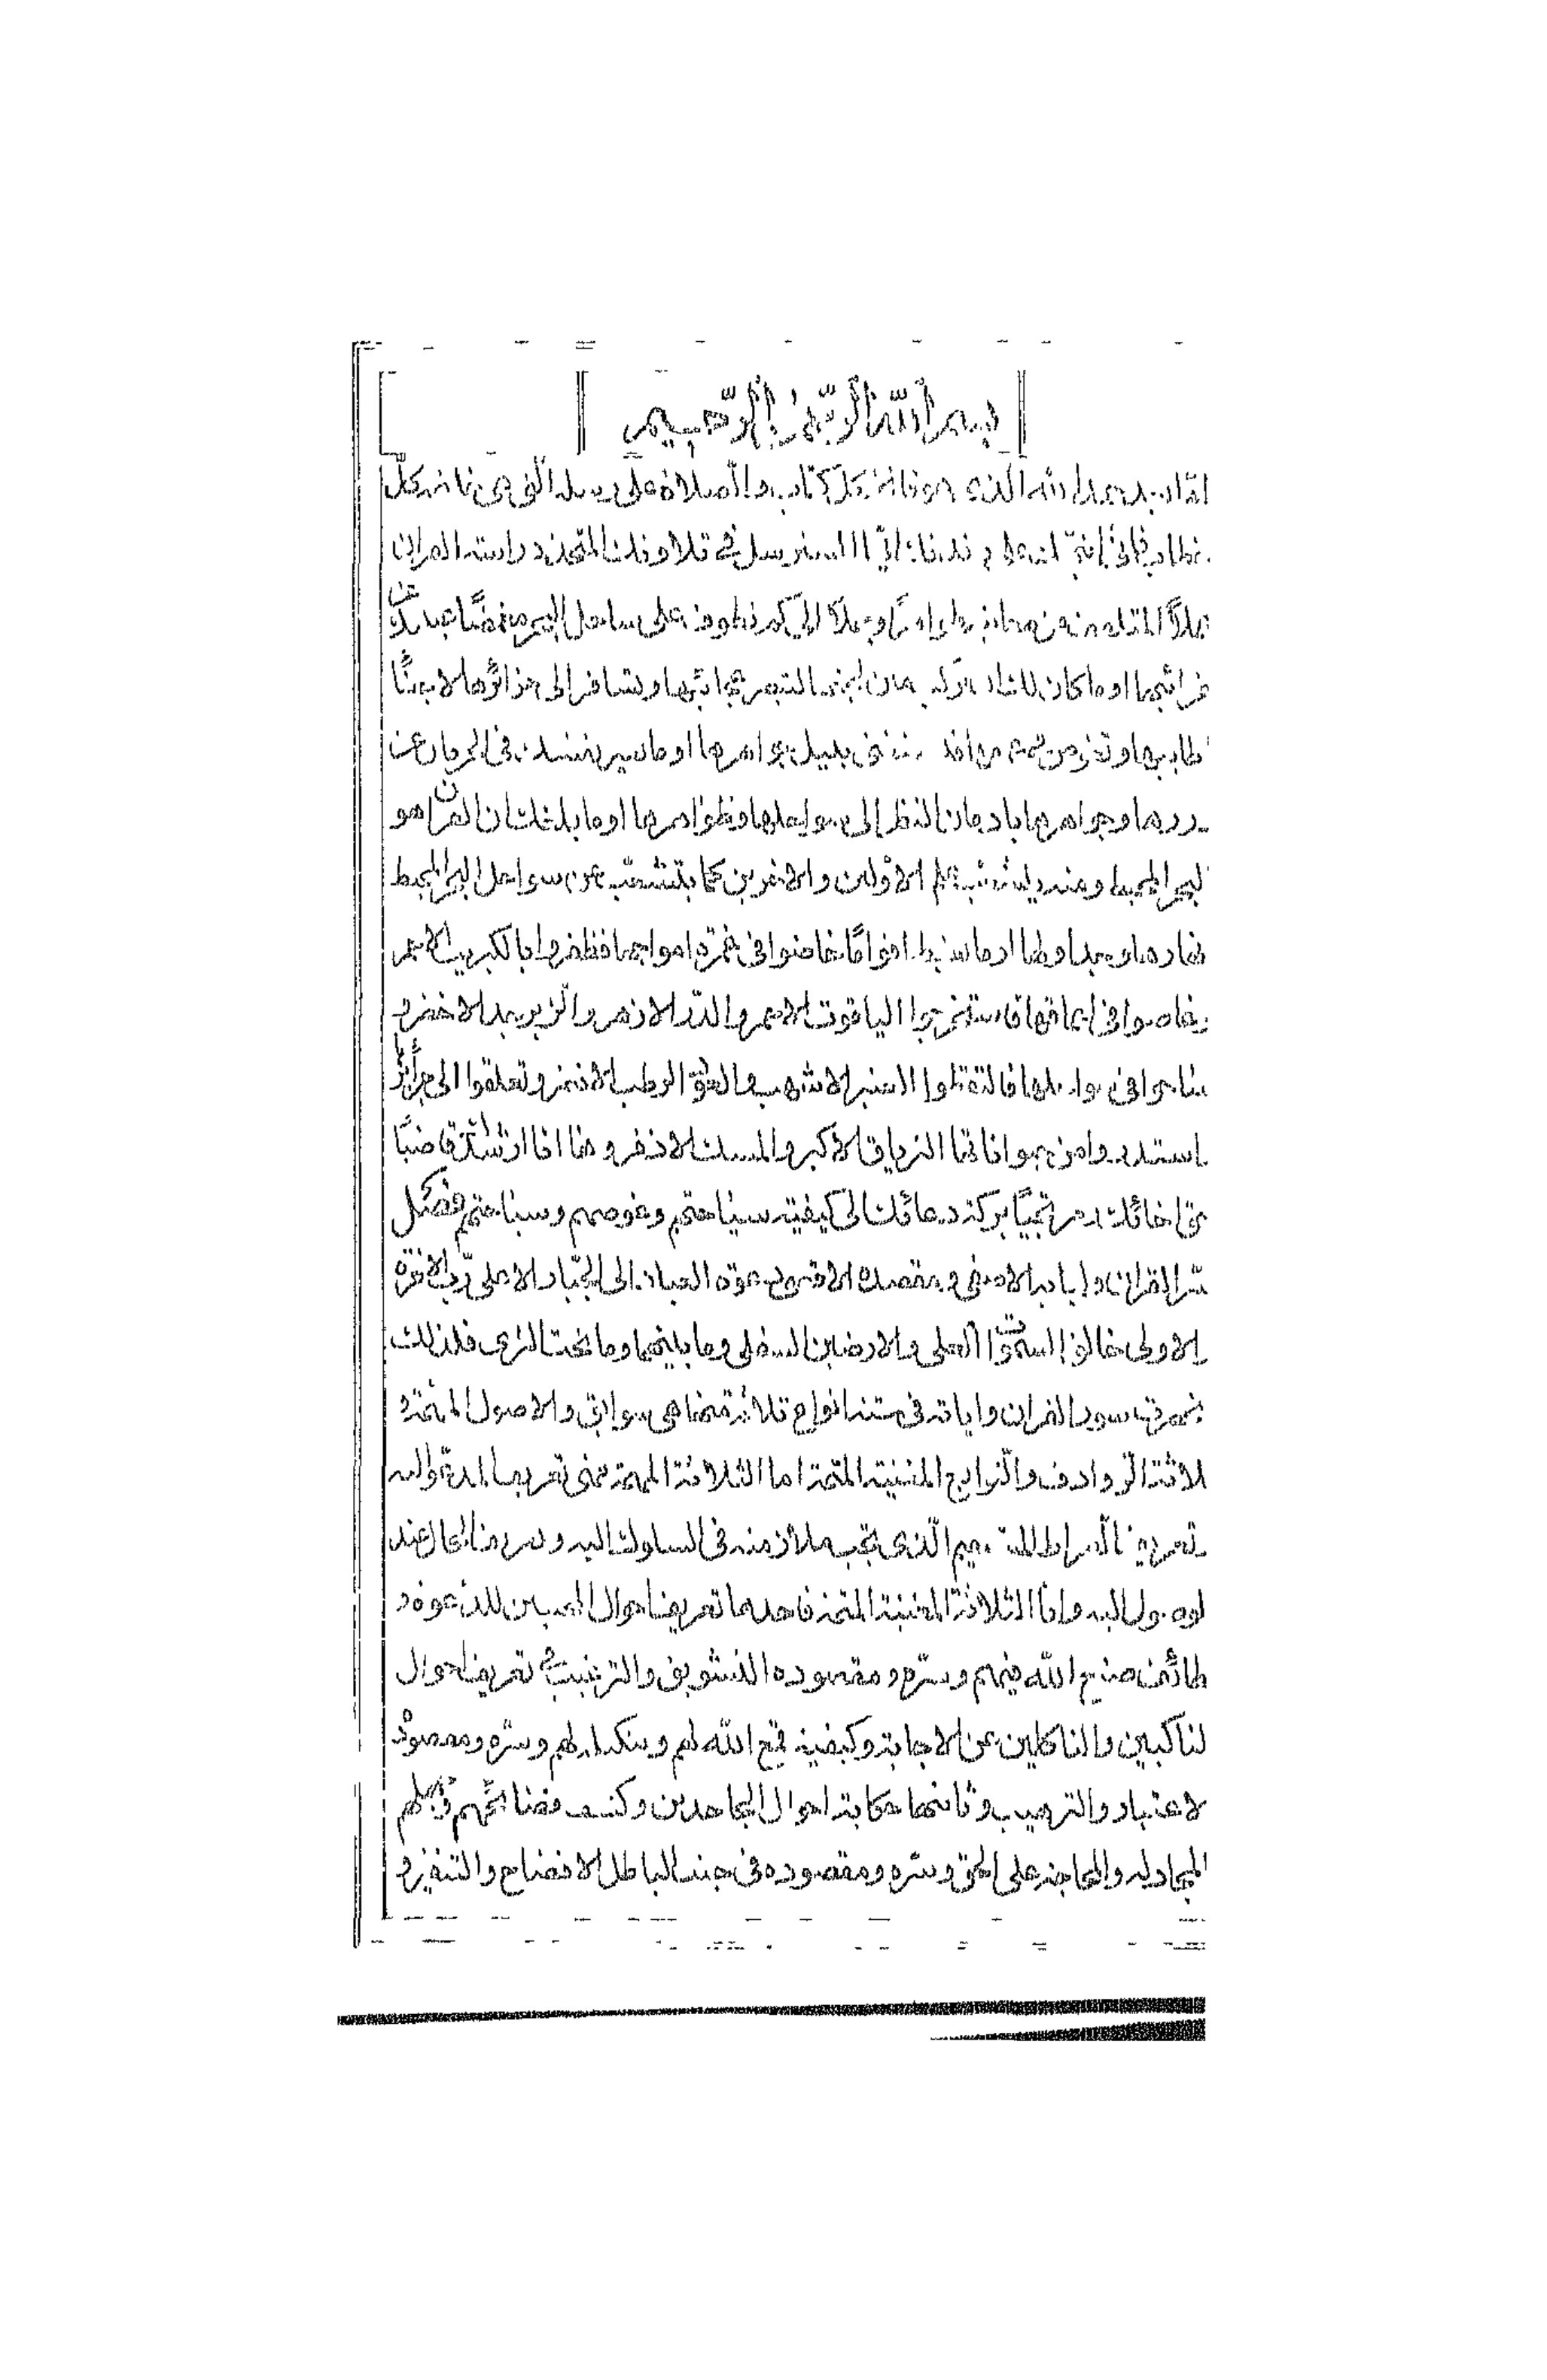 بسم الله الرحمن الرحيم
بعد حمد الله الذى هو فاتحة كل كتاب والصلاة على رسله التى هى خاتمة كل
فى تلاوتك المتخذ دراسة القران
الى كم تطوف على ساحل البحر مغمضا عينك عن
غرائبها اوما كان لك ان تركب لتبصر عجائبها وتسافر الى جزائرها لاجتناء
اطايبها وتغوص فى بنيل جواهرها اوما فى الحرمان عن
دررها وجواهرها بادمان النظر الى سواحلها وظواهرها اوما بلغك ان القران هو
البحر المحيط ومنه يتشعب علم الاولين والاخرين كما يتشعب عن سواحل البحر المحيط
انهارها وجداولها اوما تغبط اقواما خاضوا فى غمرة امواجها فظفروا بالكبريت الاحمر
وغاصوا فى اعماقها فاستخرجوا الياقوت الاحمر والدر الازهر والزبرجد الاخضر و
ساحوا فى سواحلها فالتقطوا العنبر الاشهب والعود الرطب الانضر وتعلقوا الى جزائرها
واستدروا من الترياق الاكبر والمسك الاذفر وها انا ارشدك قاضيا
حق اخائك ومرتجيا بركة دعائك الى كيفية سياحتهم وغوصهم وسباحتهم فصل
سر القران ولبابه الاصفى ومقصده الاقصى دعوة العباد الى الجبار الاعلى رب الاخرة
والاولى خالق السموات العلى والارضين السفلى وما بينهما وما تحت الثرى فلذلك
انحصرت سور القران واياته فى ستة انواع ثلاثة منها هى سوابق والاصول المهمة و
ثلاثة الروادف والتوابع المغنية المتمة اما الثلاثة المهمة فهى تعريف المدعو اليه
وتعريف الصراط المستقيم الذى يجب ملازمته فى السلوك اليه وتعريف الحال عند
الوصول اليه واما الثلاثة المغنية المتمة فاحدها تعريف احوال المجيبين للدعوة و
لطائف صنع الله فيهم وسره ومقصوده التشويق والترغيب وتعريف احوال
الناكبين والناكلين عن الاجابة وكيفية قمع الله لهم وتنكيله لهم وسره ومقصوده
الاعتبار والترهيب وثانيها حكاية احوال الجاحدين وكشف فضائحهم وجهلهم
بالمجادلة والمحاجة على الحق وسره ومقصوده فى جنب الباطل الافضاح والتنفير و